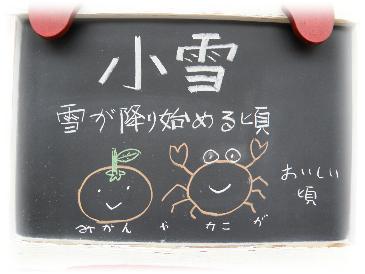 小雪
雪が降り始める頃
みかん や かに が
おいしい
頃